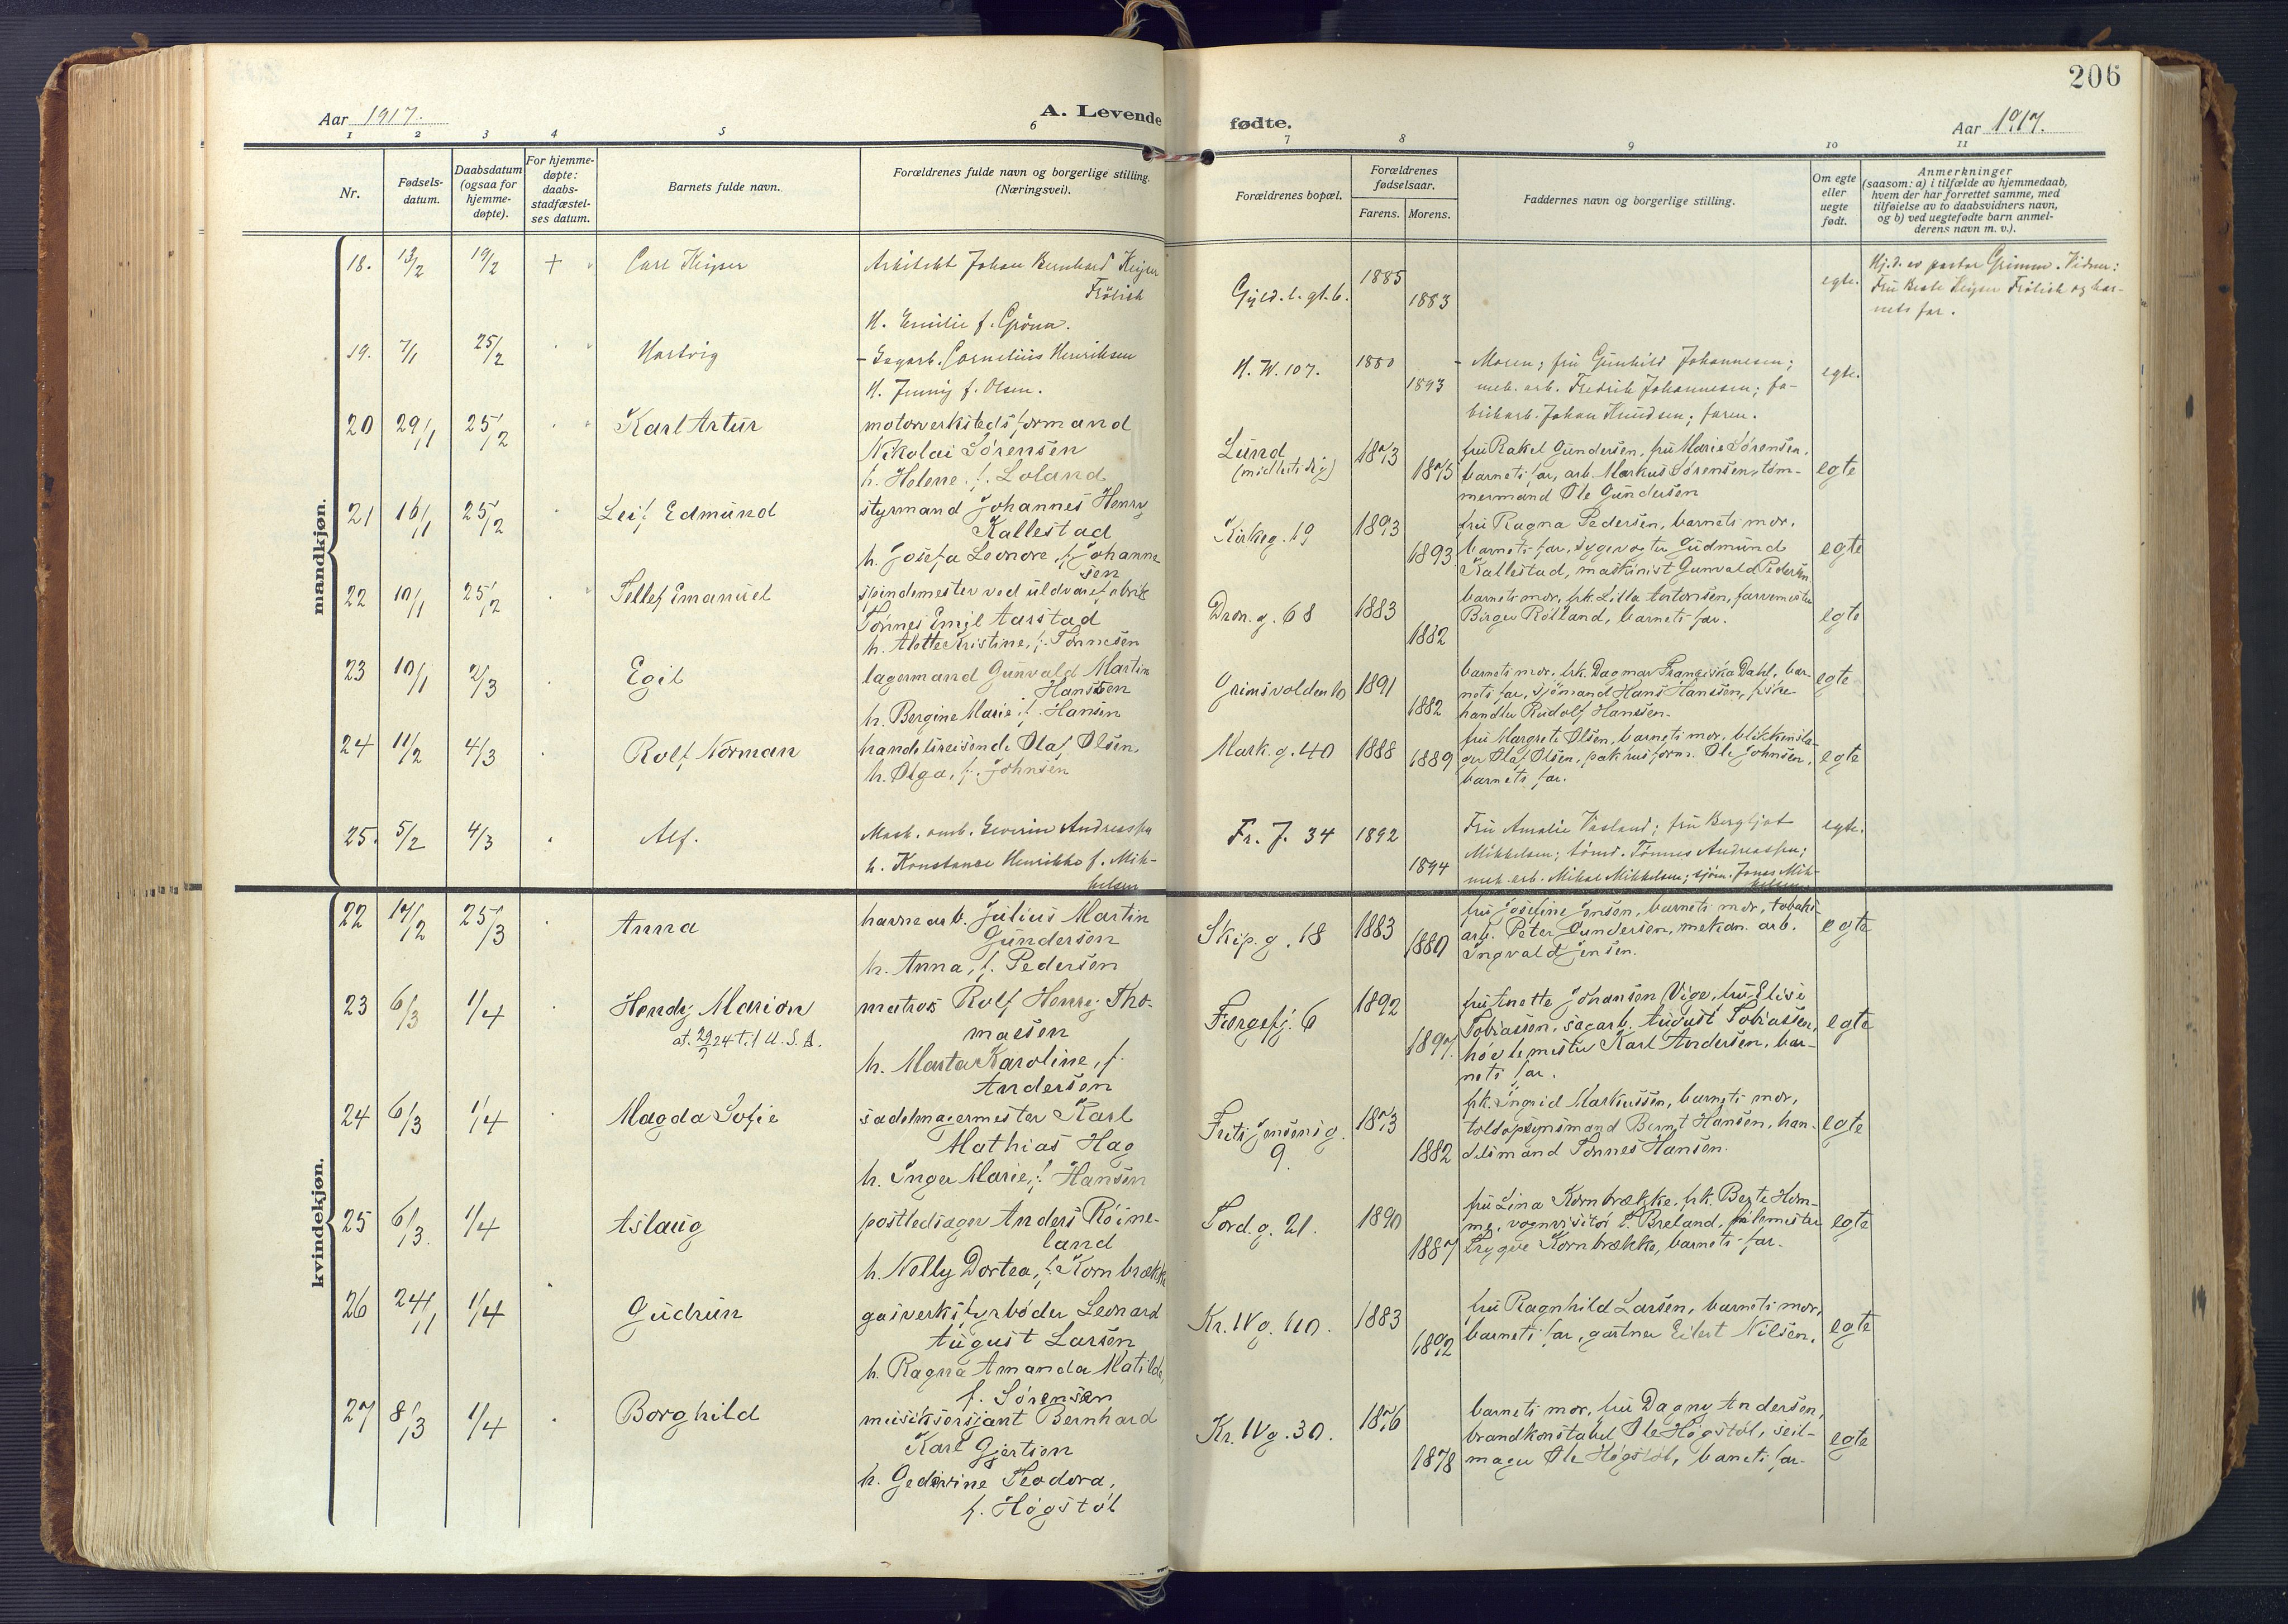 206
Aar 1917.
A. Levende fødte.
Aar 1917.
1 2 3 4 5 6 7 8 9 10 11
Nr.
Fødsels-
datum.
Daabsdatum
(ogsaa for
hjemme-
døpte).
For hjemme-
døpte:
daabs-
stadfæstel-
ses datum.
Barnets fulde navn.
Forældrenes fulde navn og borgerlige stilling.
(Næringsvei).
Forældrenes bopæl.
Forældrenes
fødselsaar.
Farens. Morens.
Faddernes navn og borgerlige stilling.
Om egte
eller
uegte
født.
Anmerkninger
(saasom: a) i tilfælde av hjemmedaab,
hvem der har forrettet samme, med
tilføielse av to daabsvidners navn,
og b) ved uegtefødte barn anmel-
derens navn m. v.).
mandkjøn.
18. 13/2 19/2 + Carl Keyser
Arkitekt Johan Bernhard Keyser
Frölich
H. Emilie f. Gröna.
Gyld. l. gt. 6. 1885 1883
egte.
Hj.d. av pastor Grimm. Vidner:
Fru Beate Keyser Frölich og bar-
nets far.
19. 7/1 25/2 Hartvig
- Sagarb. Cornelius Henriksen
H. Jenny f. Olsen.
H. W. 107. 1880 1893
- Moren; fru Gunhild Johannesen;
mek. arb. Fredrik Johannesen; fa-
brikarb. Johan Knudsen; faren.
egte.
20 29/1 25/2 Karl Artur
motorverkstedsformand
Nikolai Sørensen
h. Helene f. Loland
Lund
(midlertidig)
1873 1875
fru Rakel Gundersen, fru Marie Sørensen,
barnets far, arb. Markus Sørensen, tøm-
mermand Ole Gundersen
egte
21 16/1 25/2 Leif Edmund
styrmand Johannes Henry
Kallestad
h. Josefa Leonore, f. Johanne-
sen
Kirkeg. 19 1893 1893
fru Ragna Pedersen, barnets mor,
barnets far, sygevogter Gudmund
Kallestad, maskinist Gunvald Pedersen
egte
22 10/1 25/2 Tellef Emanuel
spindemester ved uldvarefabrik
Tønnes Emil Aarstad
h. Alette Kristine, f. Tønnesen
Dron. g. 68 1883 1882
barnets mor, frk. Lilla Antonsen, farvemester
Birger Rølland, barnets far.
egte
23 10/1 2/3 Egil
lagermand Gunvald Martin
Hanssen
h. Bergine Marie f. Hansen
Grimsvolden 10 1891 1882
barnets mor, frk. Dagmar Franziska Dahl, bar-
nets far, sjömand Hans Hanssen, fiske-
handler Rudolf Hanssen.
egte
24 11/2 4/3 Rolf Norman
handelsreisende Olaf Olsen,
h. Olga, f. Johnsen
Mark. g. 40 1888 1889
fru Margrete Olsen, barnets mor, blikkensla-
ger Olaf Olsen, pakhusform. Ole Johnsen,
barnets far.
egte
25. 5/2 4/3 Alf.
Mask. arb. Severin Andreassen
h. Konstance Henrikke f. Mik-
kelsen
Fr. J. 34 1892 1894
Fru Amalie Vasland; fru Bergljot
Mikkelsen; tømd. Tønnes Andreassen;
mek. arb. Mikal Mikkelsen; sjøm. Jonas Mik-
kelsen
egte.
kvindekjøn.
22 17/2 25/3 Anna
havnearb. Julius Martin
Gundersen
h. Anna, f. Pedersen
Skip. g. 18 1883 1880
fru Josefine Jensen, barnets mor, tobaks-
arb. Peter Gundersen, mekan. arb.
Ingvald Jensen.
egte
23 6/3 1/4 Hendy Marion
at. 29/7 24 t. f U. S. A.
matros Rolf Henry Tho-
massen
h. Marta Karoline, f.
Andersen
Færgefj. 6 1892 1897.
fru Anette Johansen Vige, fru Elise
Tobiassen, sagarb. August Tobiassen,
høvlemester Karl Andersen, bar-
nets far.
egte
24 6/3 1/4 Magda Sofie
sadelmagermester Karl
Mathias Hag
h. Inger Marie, f. Hansen
Frits Jensensg.
9.
1873 1882
frk. Ingrid Markussen, barnets mor,
toldopsynsmand Bernt Hansen, han-
delsmand Tønnes Hansen.
egte
25 6/3. 1/4 Aslaug
postledsager Anders Røine-
land
h. Nelly Dortea, f. Kornbrække
Tord. g. 21. 1890 1887
fru Lina Kornbrække, frk. Berte Hom-
me, vognvisitør T. Breland,
Trygve Kornbrække, barnets far.
egte
26 24/1 1/4 Gudrun
gasverksfyrbøder Leonard
August Larsen
h. Ragna Amanda Matilde,
f. Sørensen
Kr. IV g. 110. 1883 1892
fru Ragnhild Larsen, barnets mor,
barnets far, gartner Eilert Nilsen.
egte
27 8/3 1/4 Borghild
musiksersjant Bernhard
Karl Gjertson
h. Gedervine Teodora,
f. Høgstøl
Kr. IV g. 30. 1876 1878
barnets mor, fru Dagny Andersen,
brandkonstabel Ole Høgstøl, seil-
mager Ole Høgstøl, barnets far.
egte